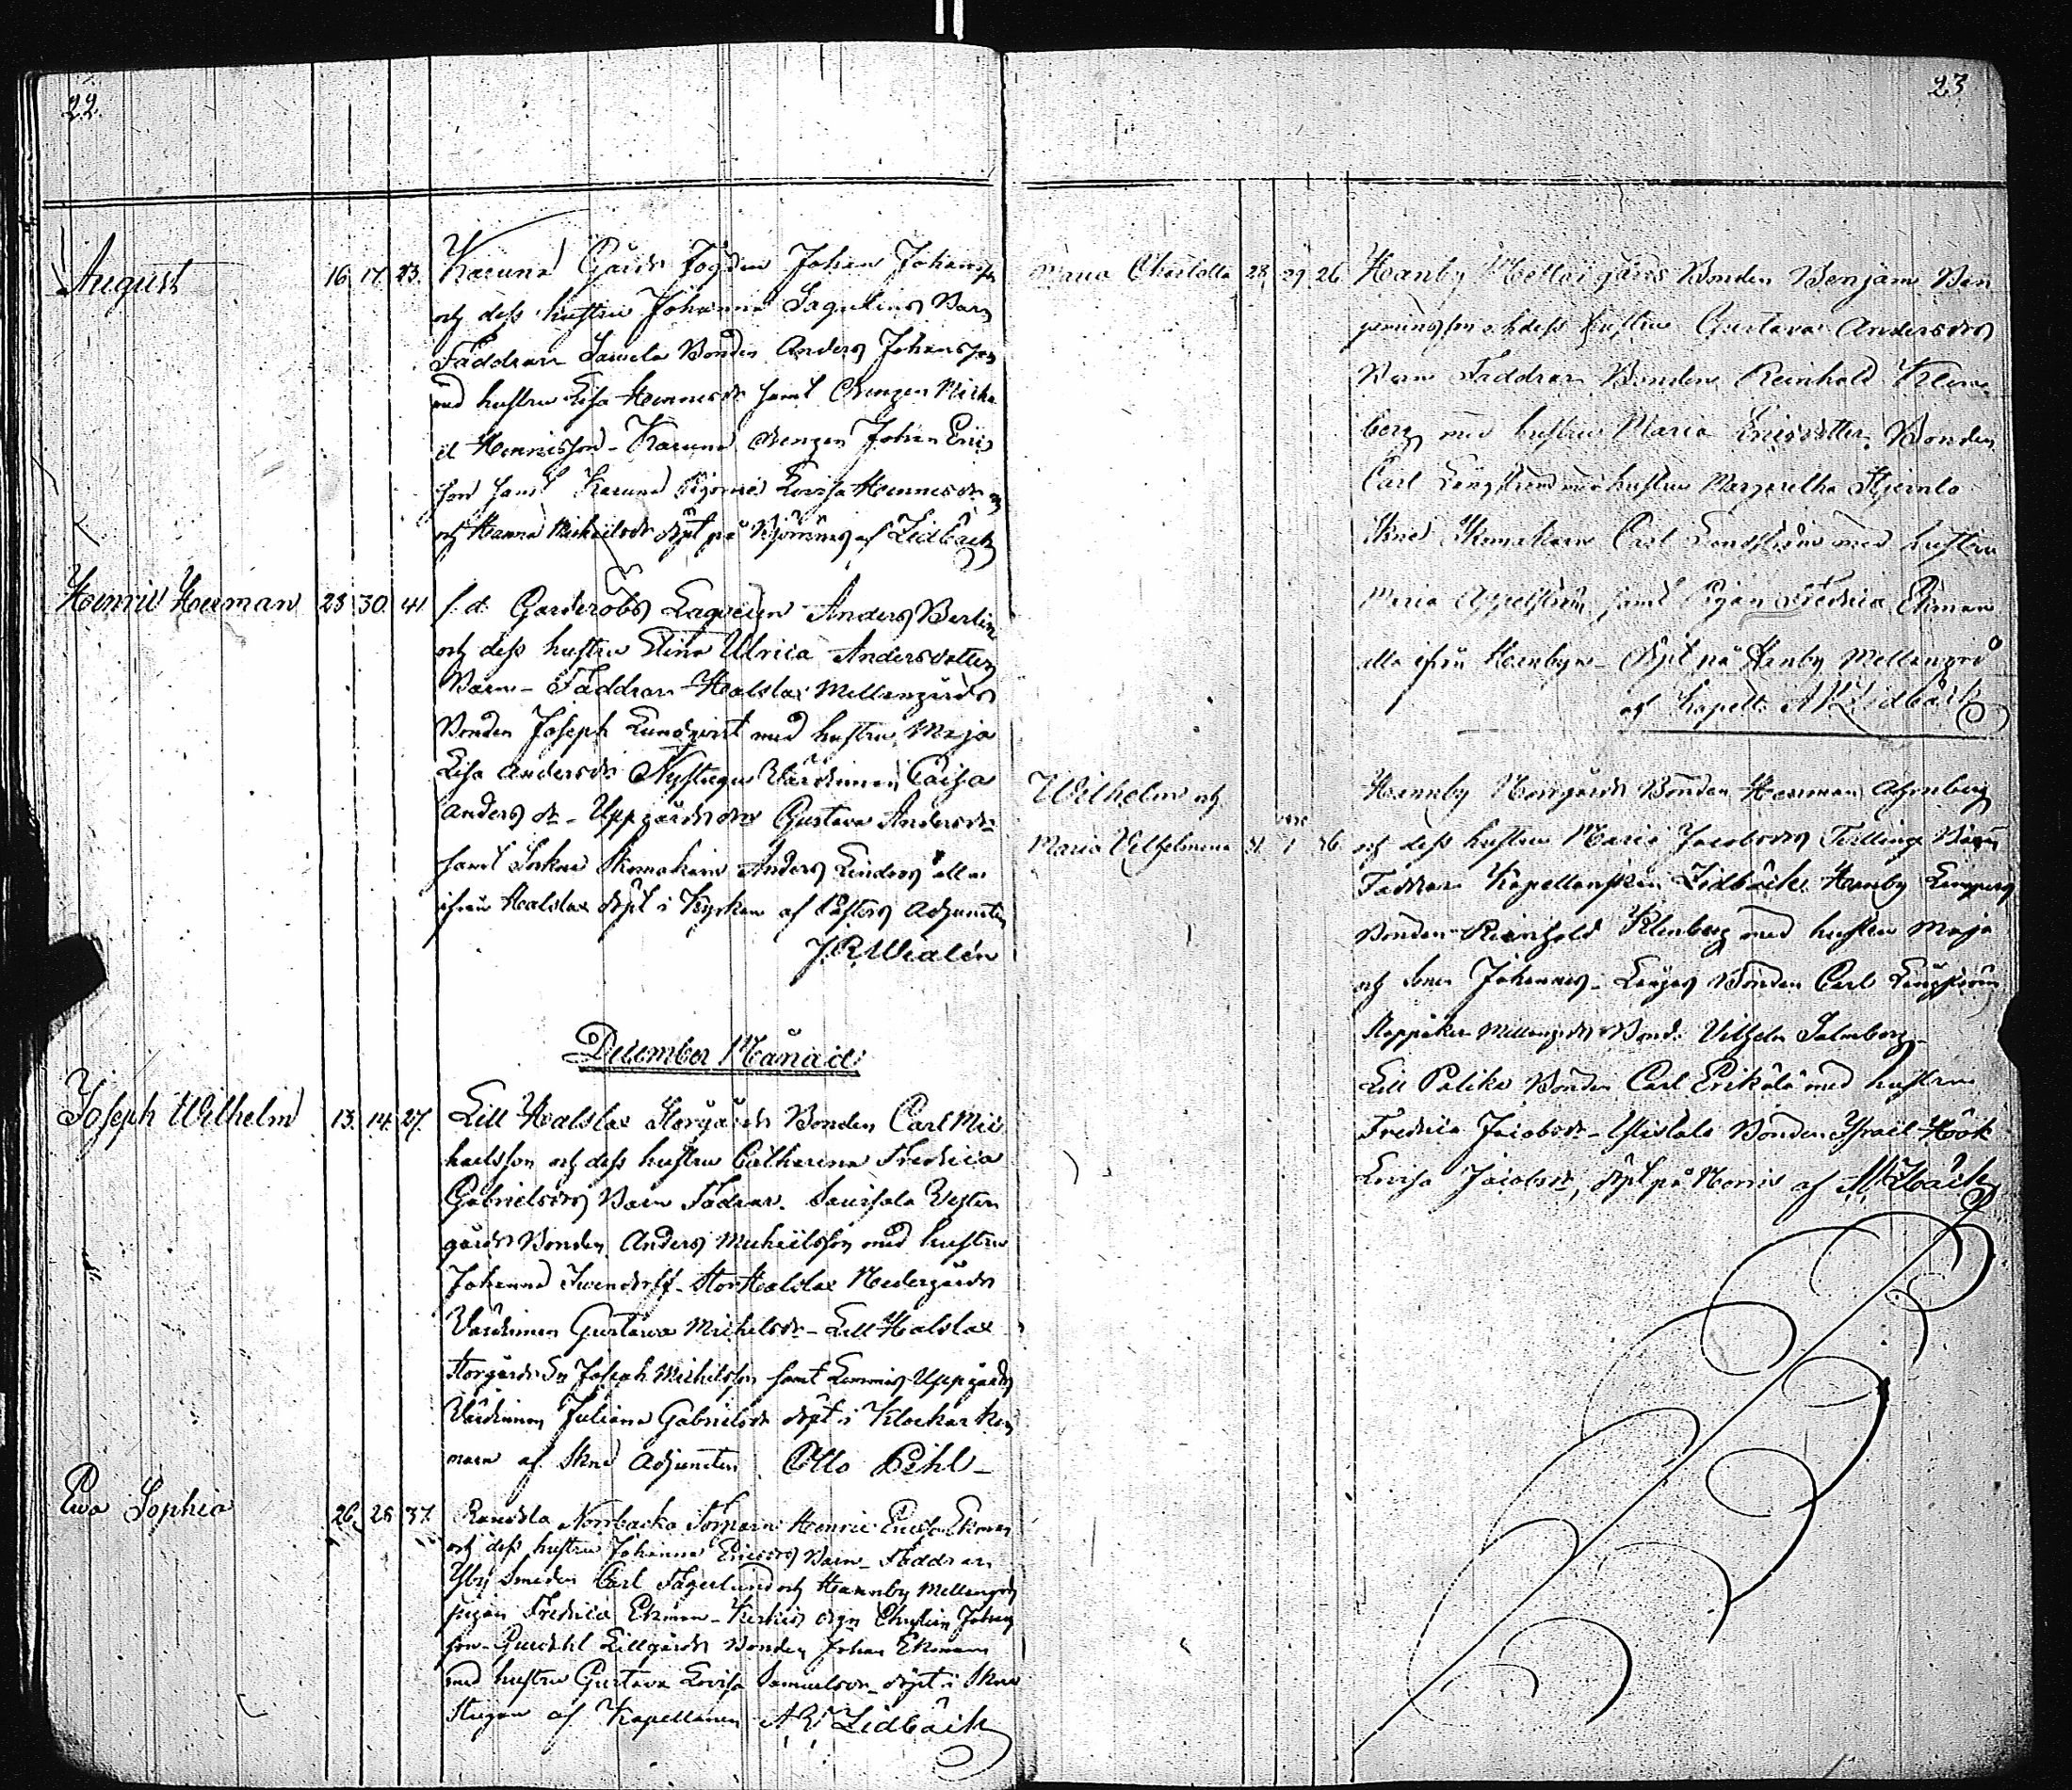 22.
August 16. 17. 23. Karuna Gårds Fogden Johan Johansson
och dess hustru Johanna Barn
Faddrar Bonden Anders Johansson
med hustru Lisa Hennersdr samt Drengen Micha
el Hennersson - Karuna drengen Johan Eric
son samt Karuna Lovisa Hennersdr
och Hanna Michelsdr döpt på af Zidbäck
Henric Herman 28 30. 41 f. d. Garderobs Laqueien Anders Berlin
och dess hustru Stina Ulrica Andersdotters
Barn - Faddrar Halslax Mellangårds
Bonden Joseph Lundqvist med hustru Maja
Lisa Andersdr Nystugu Värdinnan Caisa
Andersdr - Uppgårds Gustava Andersdr
samt Sockne Skomakarn Anders Linders alla
ifrån Halslax döpt i Kyrkan af Pastors Adjuncten
J. R. Welén
December Månad:
Joseph Wilhelm 13. 14. 27. Lill Halslax Storgårds Bonden Carl Mic
haelsson och dess hustru Catharina Fredrica
Gabrielsdrs Barn Fadrar. Westen
gårds Bonden Anders Michelsson med hustru
Johanna - Stor Halslax Nedergårds
Värdinnan Gustava Michelsdr - Lill Halslax
Storgårds Joseph Michelsson samt Lemnis Uppgårds
Värdinnan Juliana Gabrielsdr döpt i Klockar Kam
maren af Skne Adjuncten Otto Pihl -
Eva Sophia 26. 28 37. Norrbacka Torparn Henric Ericss Ekman
och dess hustru Johanna Ericsdrs Barn - Faddrar
Yby Smeden Carl Fagerlund och Hannby Mellangårds
pigan Fredrica Ekman - Christian Johan
son - Lillgårds Bonden Johan Ekman
med hustru Gustava Lovisa Samuelsdr - döpt i Skne
Stugan af Kapellanen A W Zidbäck
23
Maria Charlotta 28 29 26 Hanby Mellangårds Bonden Benjam. Ben
jaminsson o dess hustru Gustava Andersdrs
Barn Faddrar Bonden Reinhold Klen
berg med hustru Maria Ericsdotter Bonden
Carl Långström med hustru Margretha
Skne Skomakarn Carl Lundström med hustru
Maria Appelström samt Pigan Fredrica Ekman
alla ifrån Hanby - Döpt på Hanby Mellangård
af Kapell. A W Zidbäck
Wilhelm och Hannby Norrgårds Bonden Herman
Maria Vilhelmina 31. 1 36 och dess hustru Maria Jacobsdrs Tvilling Barn
Faddrar Kapellanskan Zidbäck. Hanby
Bonden Reinhold Klenberg med hustru Maja
och Sonen Johannes - Bonden Carl Långström
Mellangårds Bond. Vilhelm Salmberg -
Lill Palike Bonden Carl med hustru
Fredrica Jacobsdr - Bonden Israel Höök
Lovisa Jacobsdr, döpt på Norris af A W Zidbäck